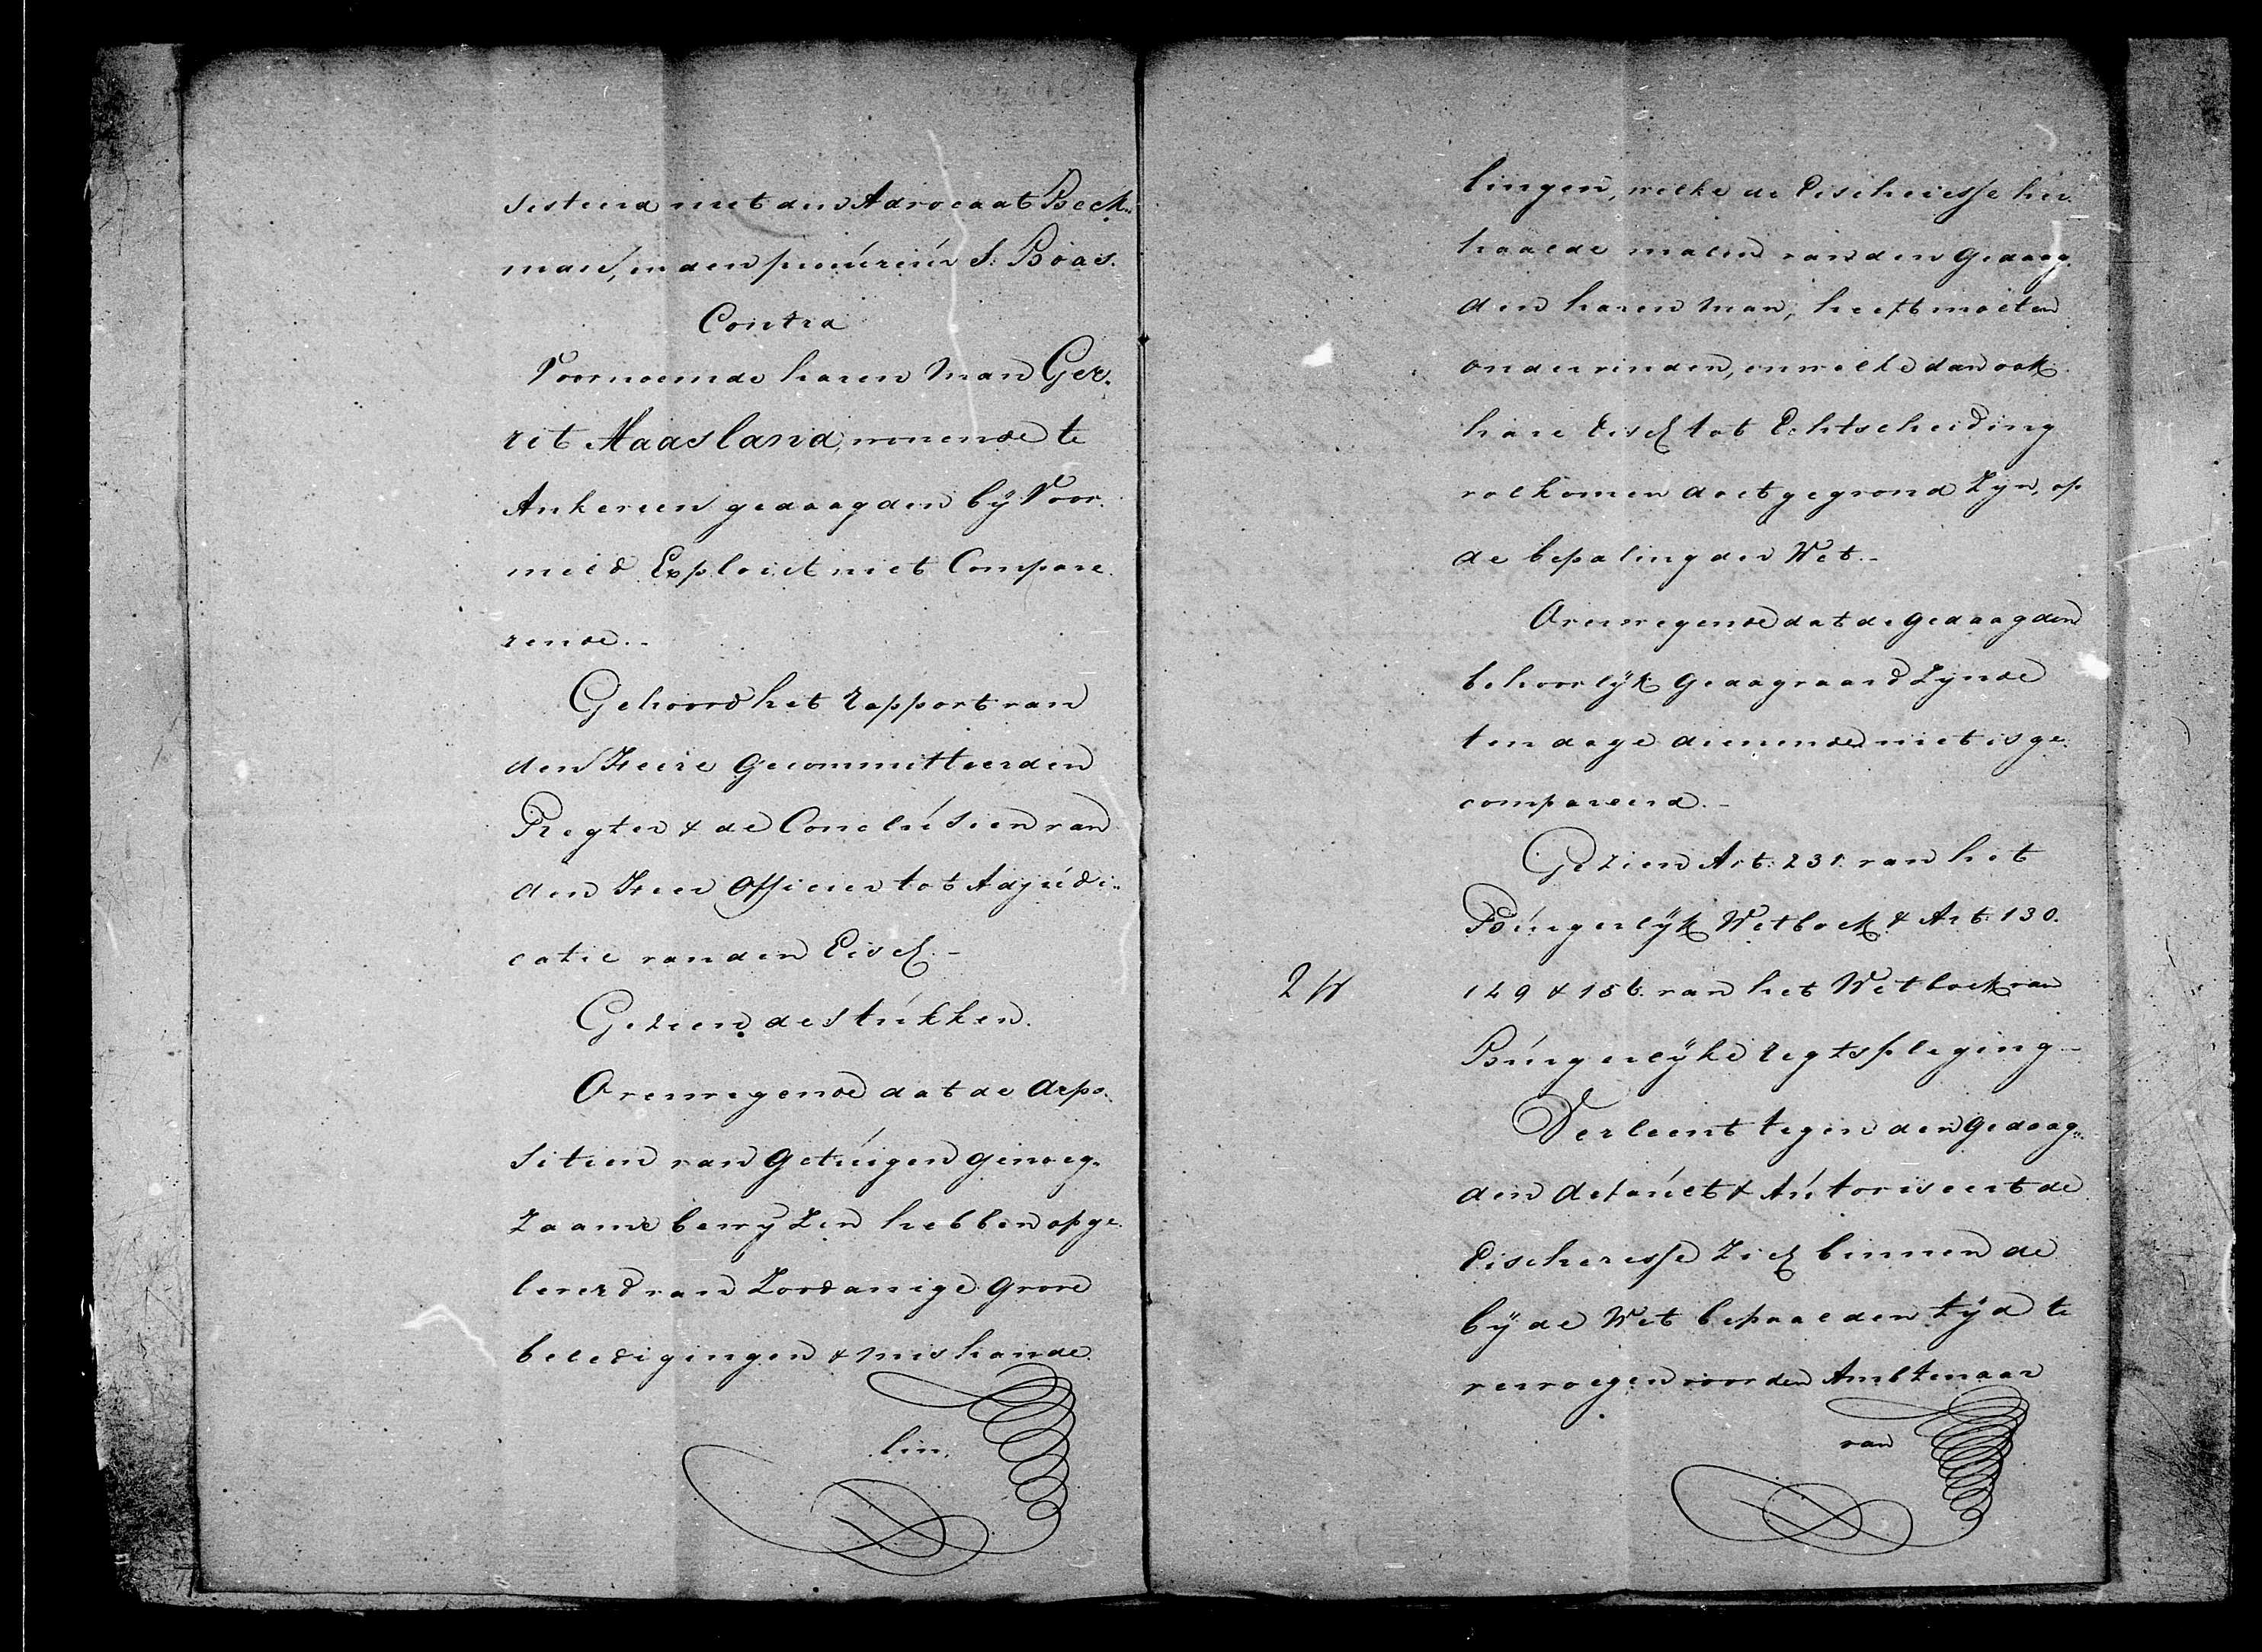 sisteerd met den Advocaat Beek„
man, en den procúreúr S. Boas.
Contra
Voornoemde haren Man Ger„
rit Maasland, wonende te
Ankeveen gedaagden bÿ Voor„
meld Exploict niet Compare„
rende.–
Gehoord het rapport van
den Heere Gecommitteerden
Regter & de Conclúsien van
den Heer Officier tot Adjúdi„
catie van den Eisch.–
Gezien de stúkken.
Overwegende dat de depo„
sitien van Getúigen genoeg„
zaame bewyzen hebben opge„
leverd van Zoodanige grove
beledigingen & mishande„
lin„
lingen, welke de Eischeresse her„
haalde malen van den gedaag„
den haren man, heeft moeten
ondervinden, en welke dan ook
hare Eisch tot Echtscheiding
volkomen doet gegrond Zyn, op
de bepaling der Wet.–
Overwegende dat de gedaagden
behoorlÿk gedagvaard Zynde
ten dage dienende niet is ge„
compareerd.–
Gezien Art: 231. van het
Búrgerlÿk Wetboek & Art. 130.
149 & 156. van het Wetboek van
Búrgerlÿke regtspleging–
Verleent tegen den gedaag„
den defaúct & Aútoriseert de
Eischeresse Zich binnen de
bÿ de Wet bepaalden tÿd te
vervoegen voor den Ambtenaar
van